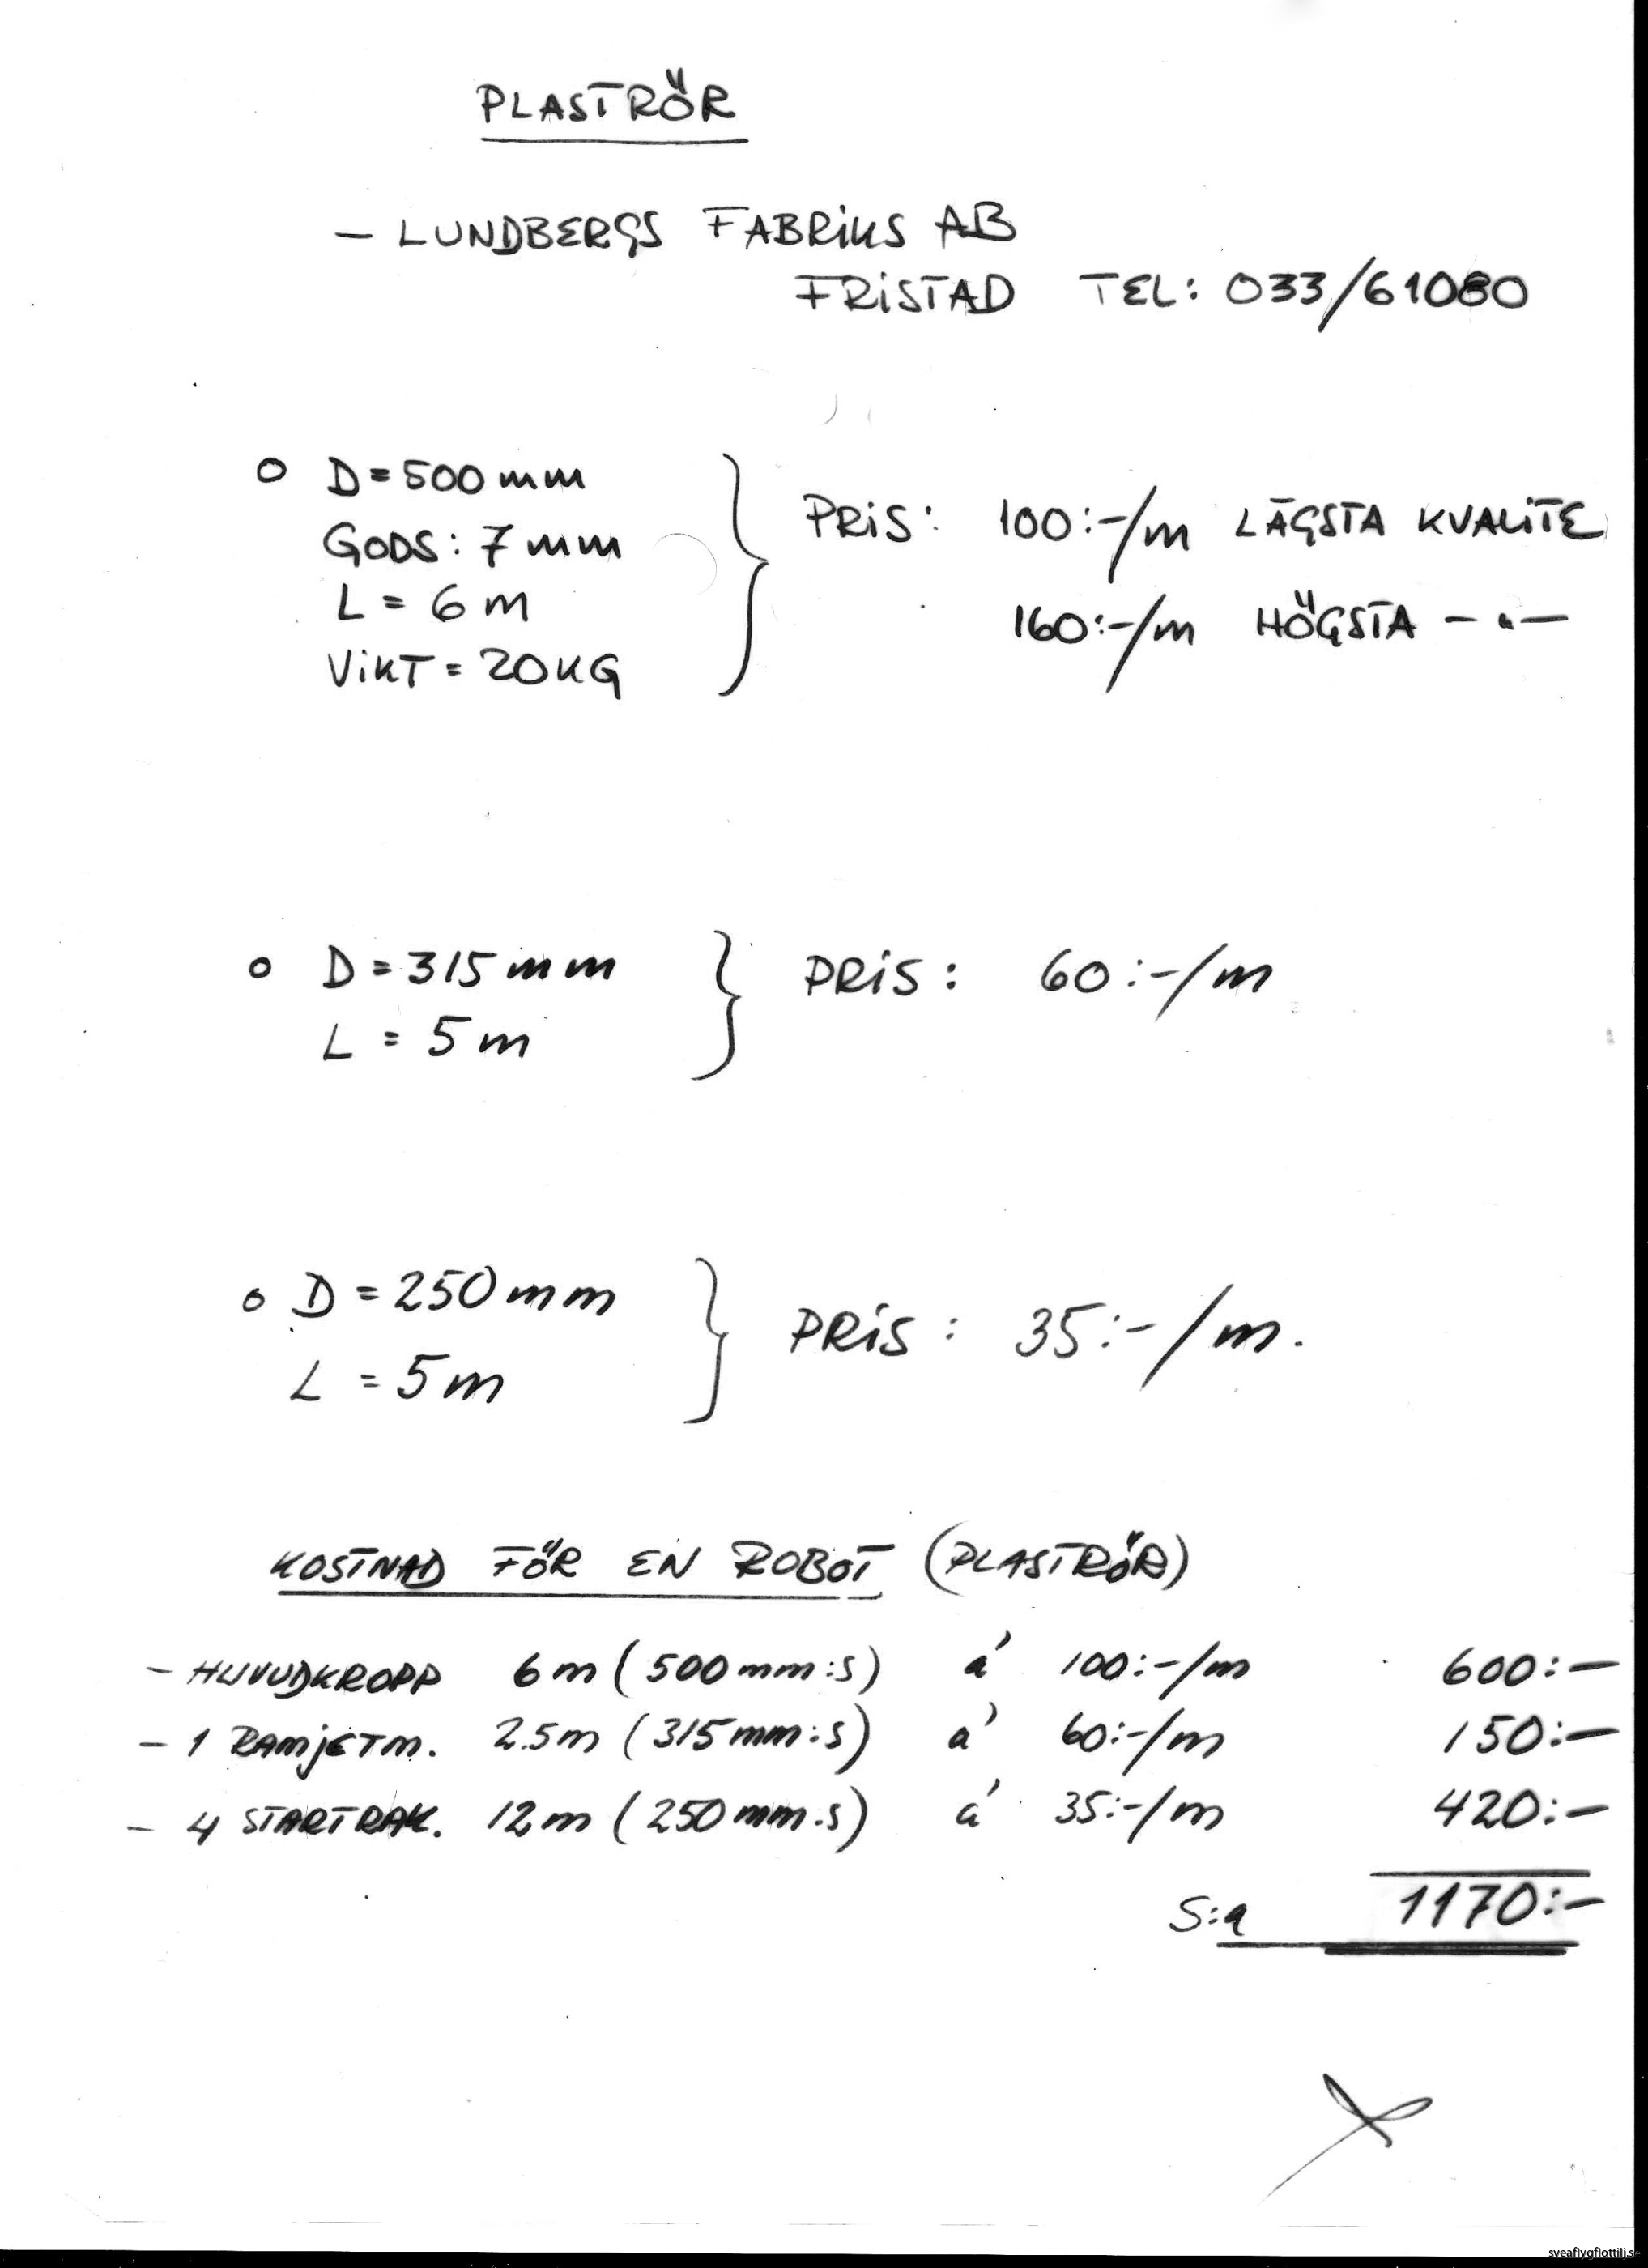 PLASTRÖR
- LUNDBERGS FABRIKS AB
FRISTAD TEL: 033/61080
o D=500 mm
GODS: 7 mm
L = 6 m
VIKT = 20 KG
PRIS: 100:-/m LÄGSTA KVALITE
160:-/m HÖGSTA - " -
o D = 315 mm
L = 5 m
PRIS: 60:-/m
o D = 250 mm
L = 5 m
PRIS: 35:-/m.
KOSTNAD FÖR EN ROBOT (PLASTRÖR)
- HUVUDKROPP 6 m (500 mm:s) á 100:-/m 600:-
- 1 RAMJETM. 2.5 m (315 mm:s) á 60:-/m 150:-
- 4 STARTRAK. 12 m (250 mm:s) á 35:-/m 420:-
S:a 1170:-
sveaflygflottilj.se